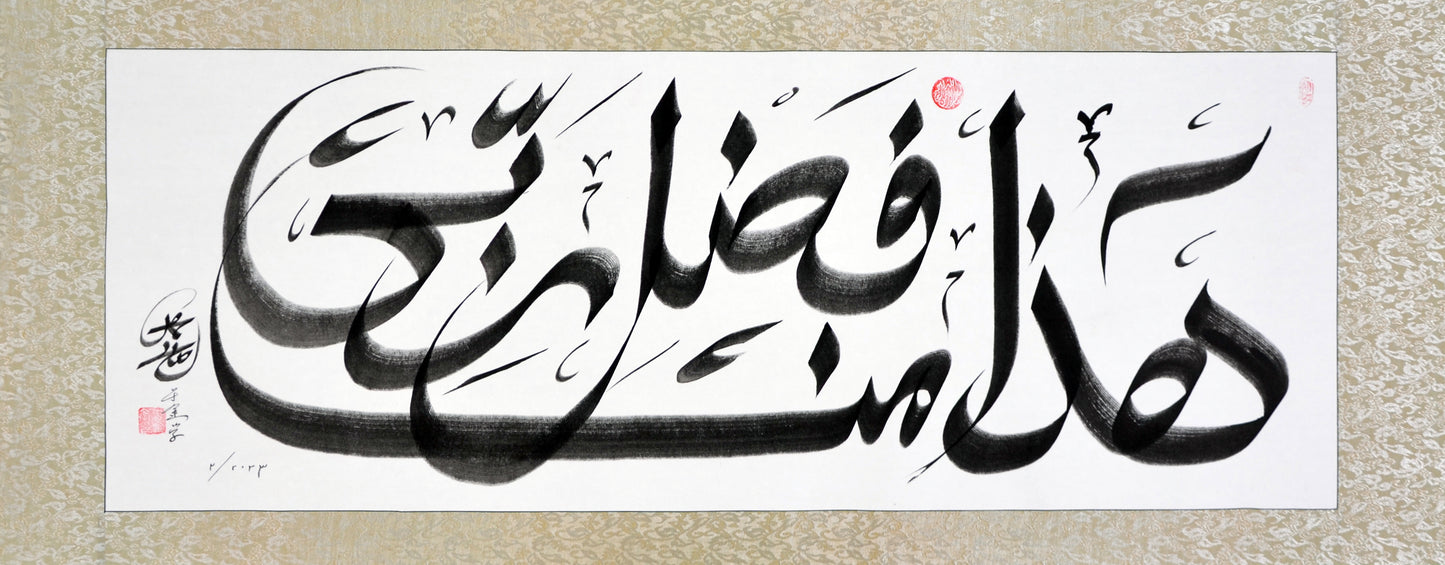 هَذَا مِنْ فَضْلِ رَبِّي
٢/٢٠٢٣